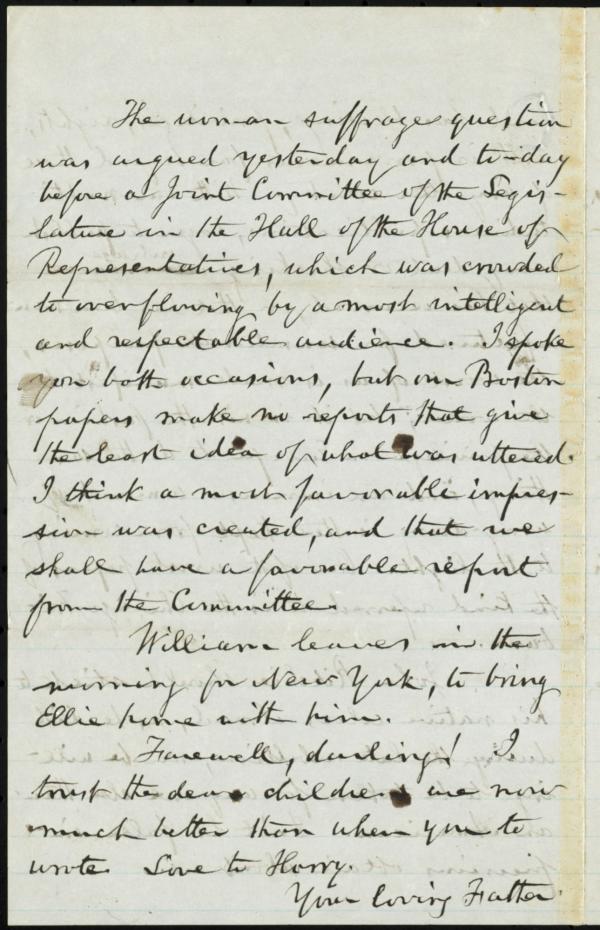 The woman suffrage question
was argued yesterday and to-day
before a Joint Committee of the Legis-
lature in the Hall of the House of
Representatives, which was crowded
to overflowing by a most intelligent
and respectable audience. I spoke
on both occasions, but our Boston
papers make no reports that give
the least idea of what was uttered.
I think a most favorable impres-
sion was created, and that we
shall have a favorable report
from the Committee.
William leaves in the
morning for New York, to bring
Ellie home with him.
Farewell, darling! I
trust the dear children are now
much better than when you
wrote. Love to Harry.
Your loving Father.